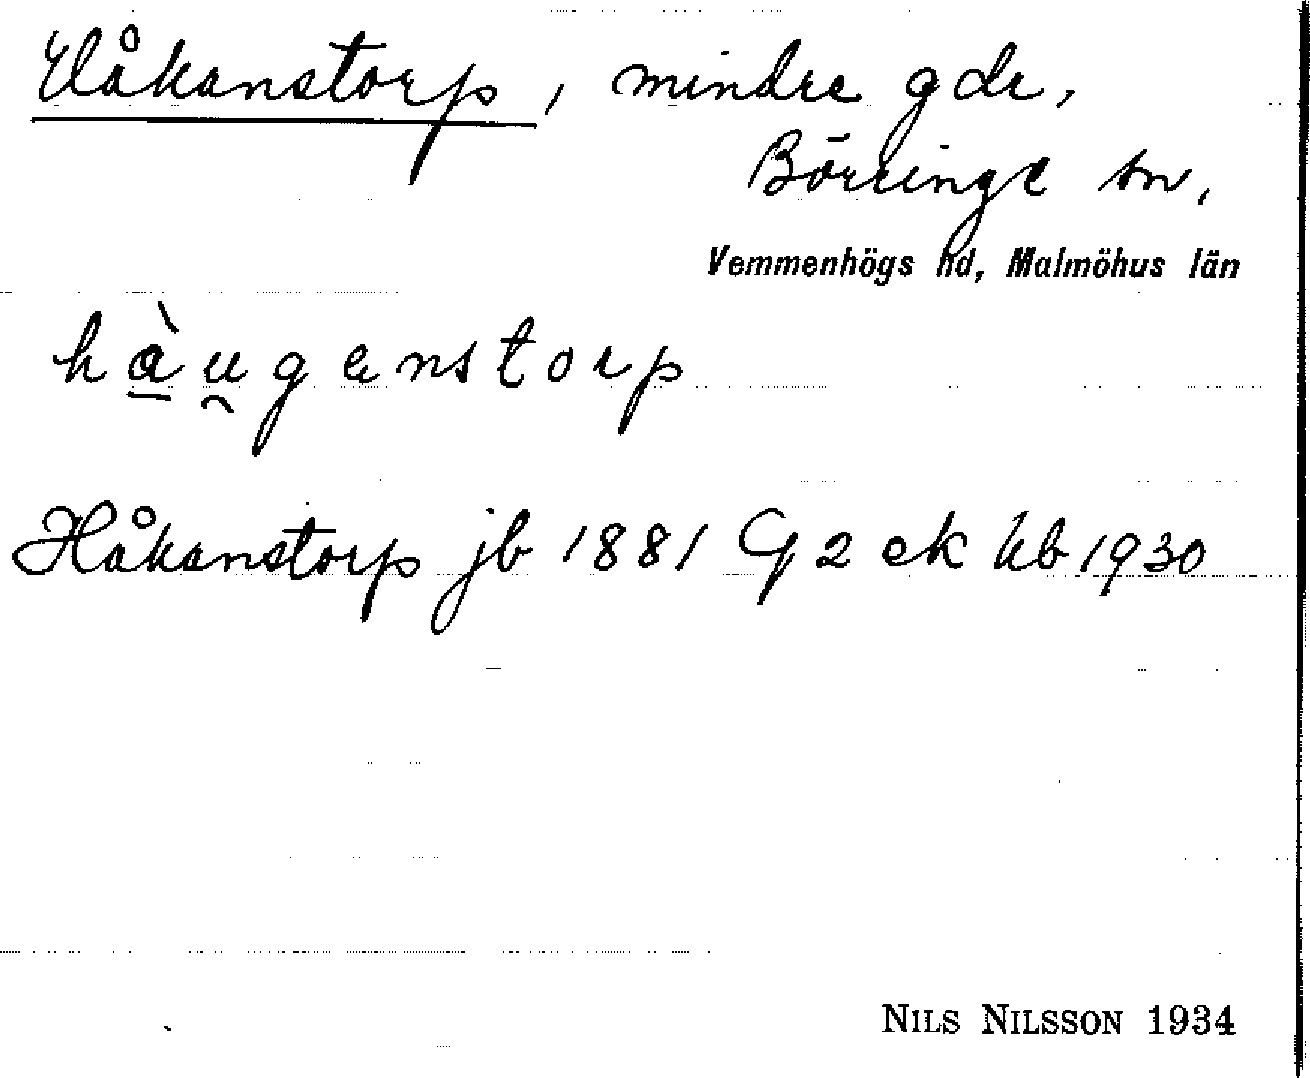 Håkanstorp, mindre gdr,
Börringe sn,
Vemmenhögs hd, Malmöhus län
hà̱u̯genstorp
Håkanstorp jb 1881 G 2 ek kb 1930
NILS NILSSON 1934